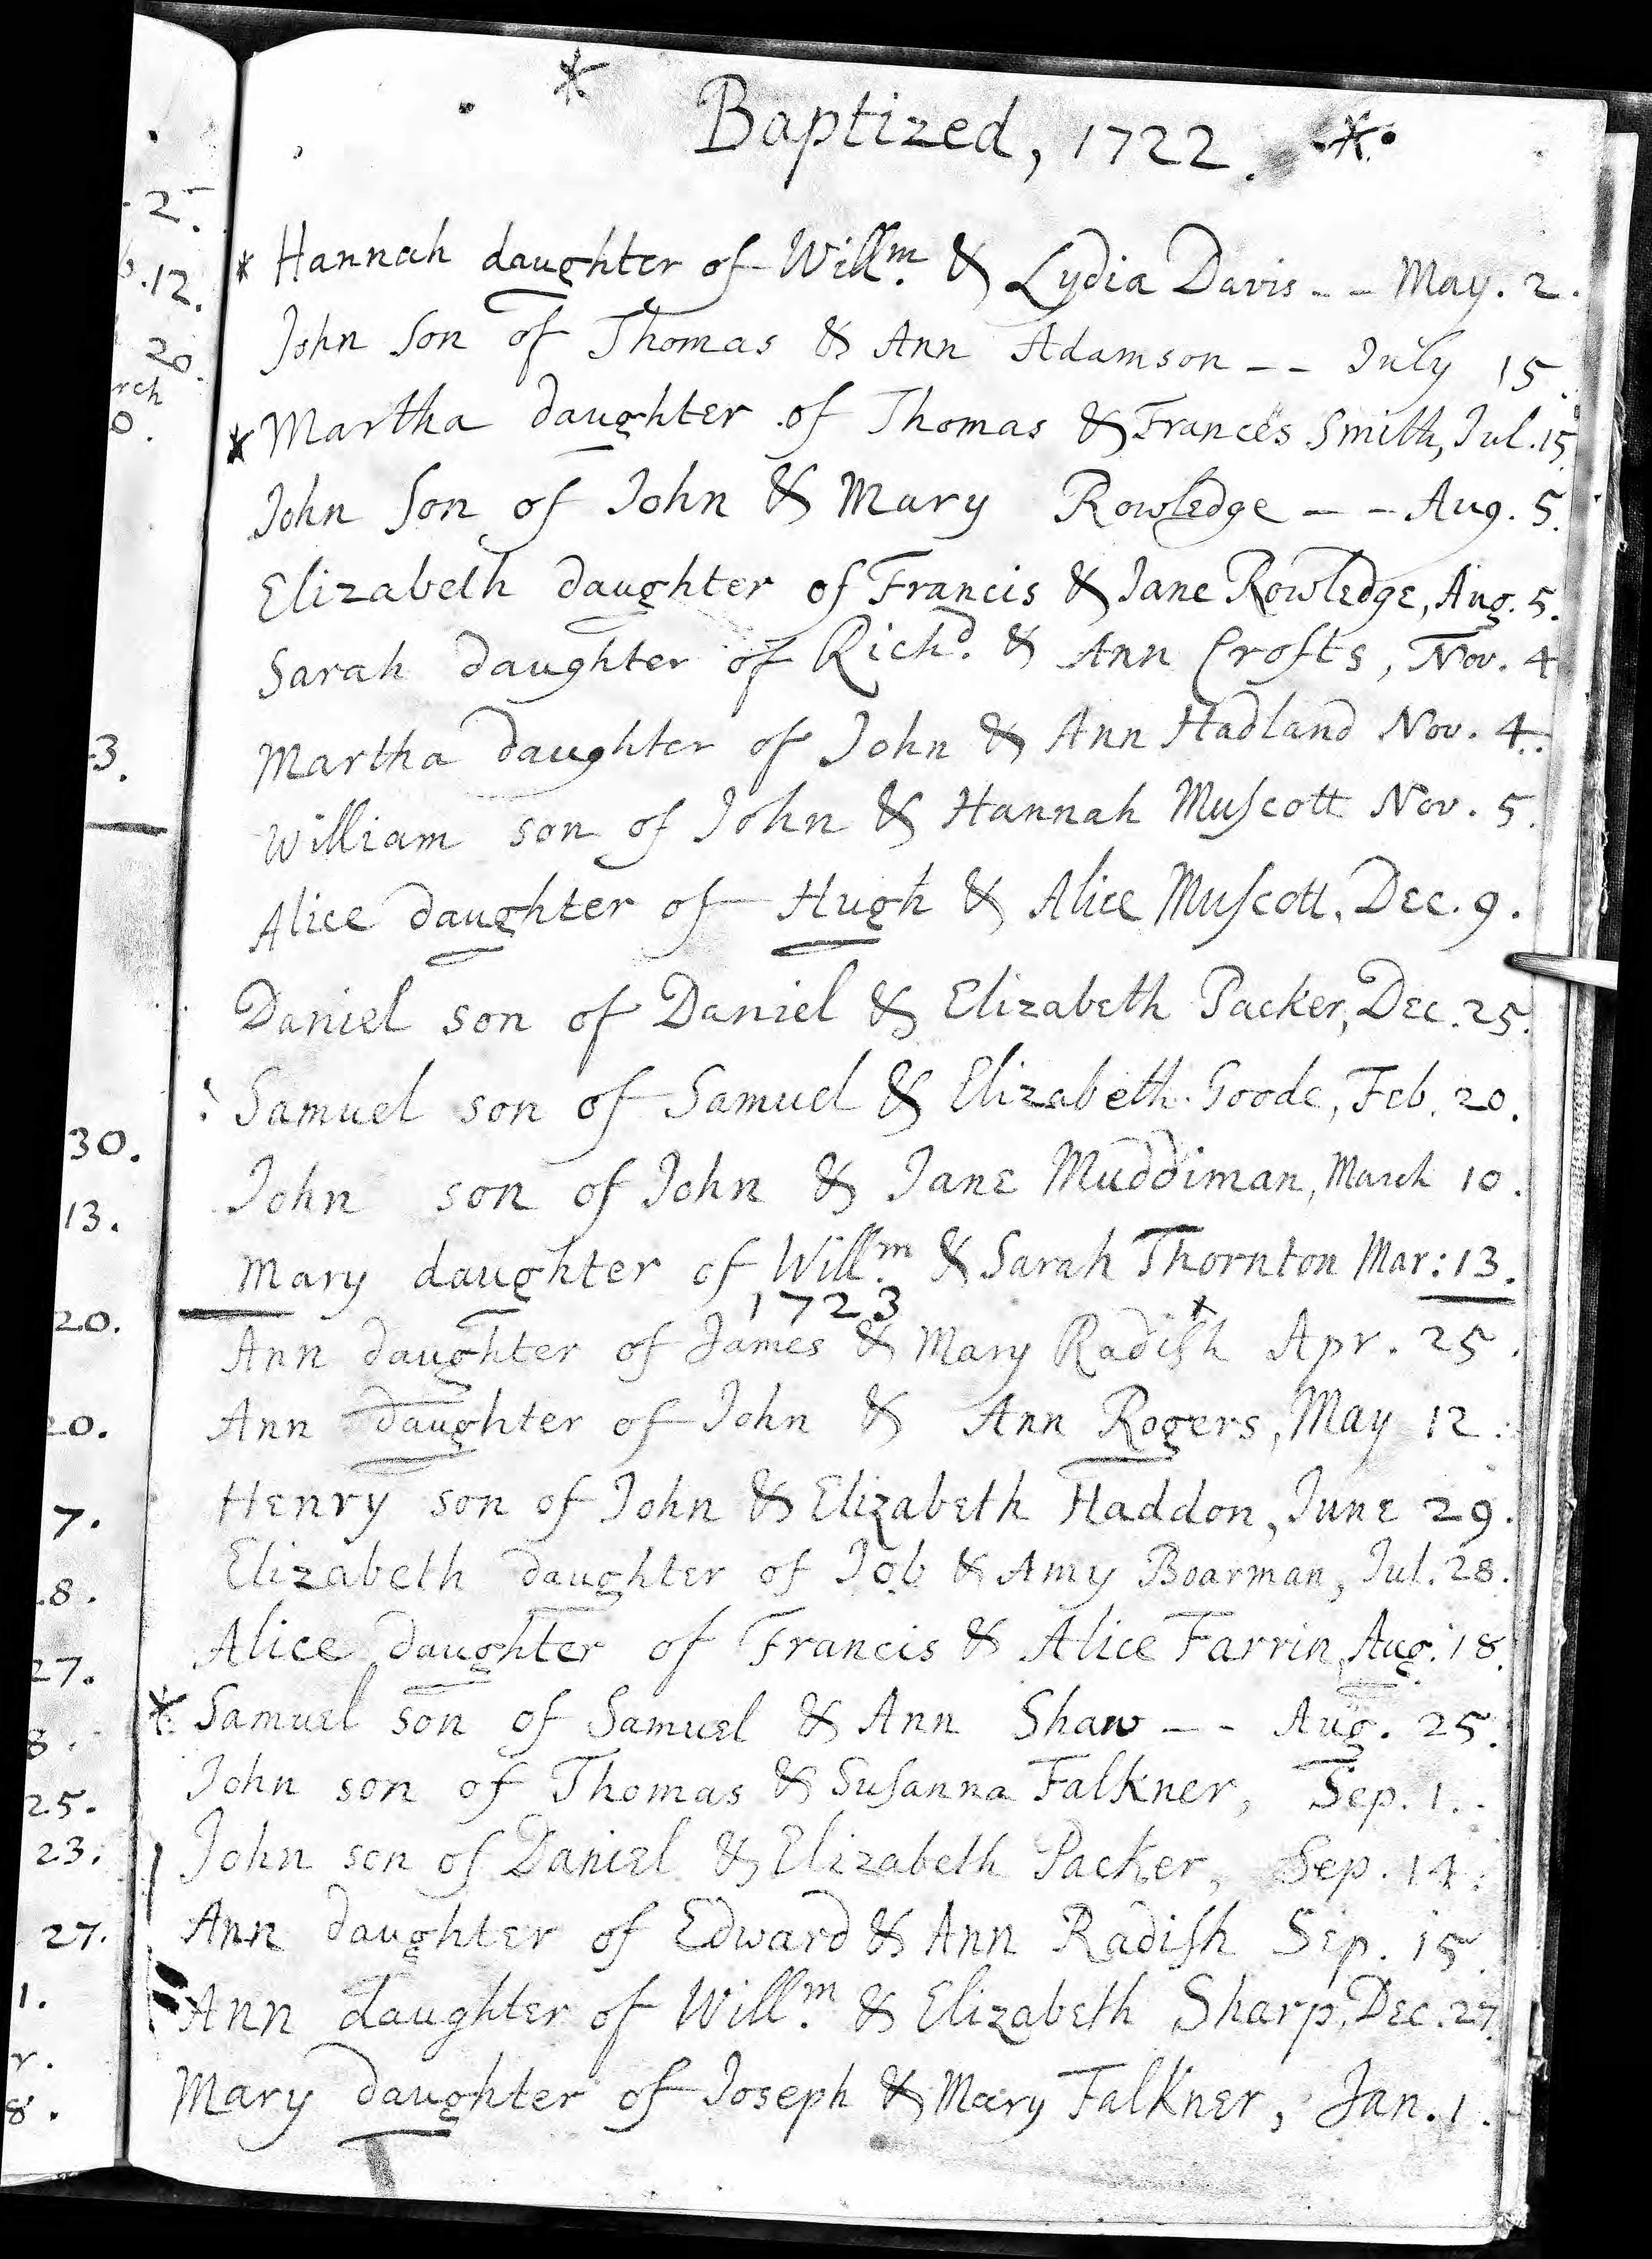 * Baptized, 1722. *
* Hannah daughter of Willm. & Lydia Davis -- May. 2.
John Son of Thomas & Ann Adamson -- July 15.
* Martha daughter of Thomas & Frances Smith, Jul. 15.
John Son of John & Mary Rowledge -- Aug. 5.
Elizabeth daughter of Francis & Jane Rowledge, Aug. 5.
Sarah daughter of Richd. & Ann Crofts, Nov. 4
Martha daughter of John & Ann Hadland Nov. 4.
William son of John & Hannah Muſcott Nov. 5.
Alice daughter of Hugh & Alice Muſcott, Dec. 9.
Daniel son of Daniel & Elizabeth Packer, Dec. 25.
Samuel son of Samuel & Elizabeth Goode, Feb. 20.
John son of John & Jane Muddiman, March 10.
Mary daughter of Willm. & Sarah Thornton Mar: 13.
1723
Ann daughter of James & Mary Radiſh Apr. 25.
Ann daughter of John & Ann Rogers, May 12.
Henry son of John & Elizabeth Haddon, June 29.
Elizabeth daughter of Job & Amy Boarman, Jul. 28.
Alice daughter of Francis & Alice Farrin, Aug. 18.
* Samuel son of Samuel & Ann Shaw -- Aug. 25.
John son of Thomas & Suſanna Falkner, Sep. 1.
John son of Daniel & Elizabeth Packer, Sep. 14.
Ann daughter of Edward & Ann Radiſh Sep. 15.
Ann daughter of Willm. & Elizabeth Sharp, Dec. 27.
Mary daughter of Joseph & Mary Falkner, Jan. 1.
2.
12.
20.
rch
0.
3.
30.
13.
20.
20.
7.
8.
27.
8.
25.
23.
27.
1.
r.
8.